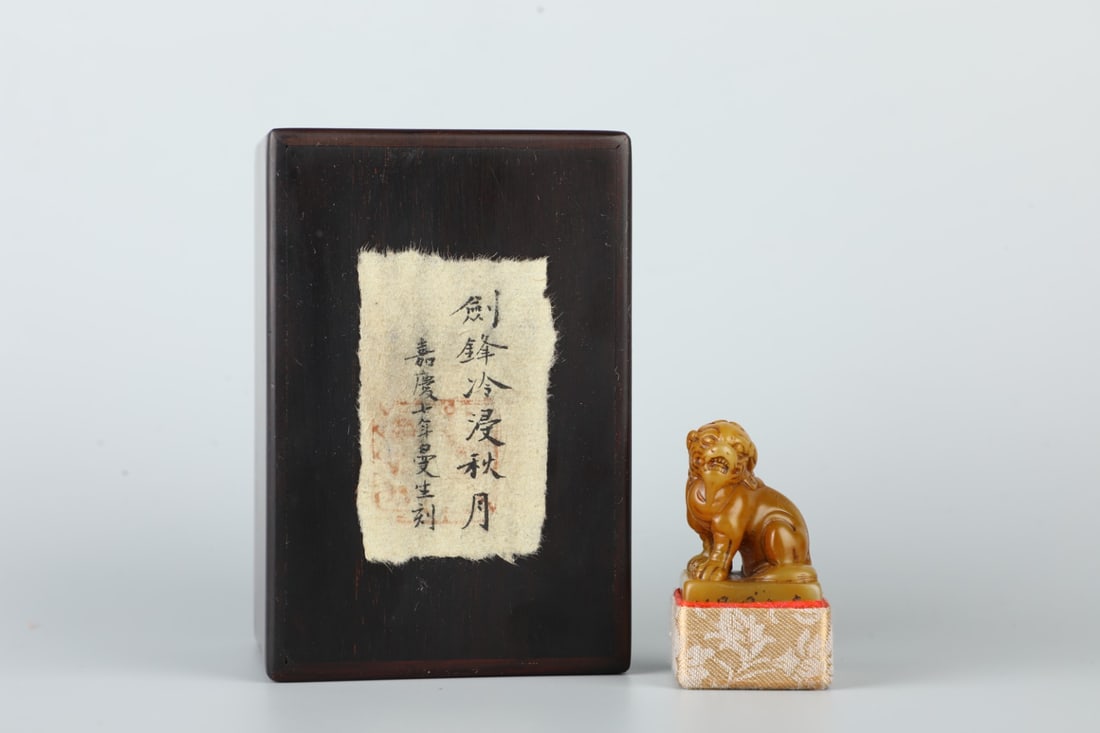 劍鋒冷浸秋月
嘉慶七年曼生刻